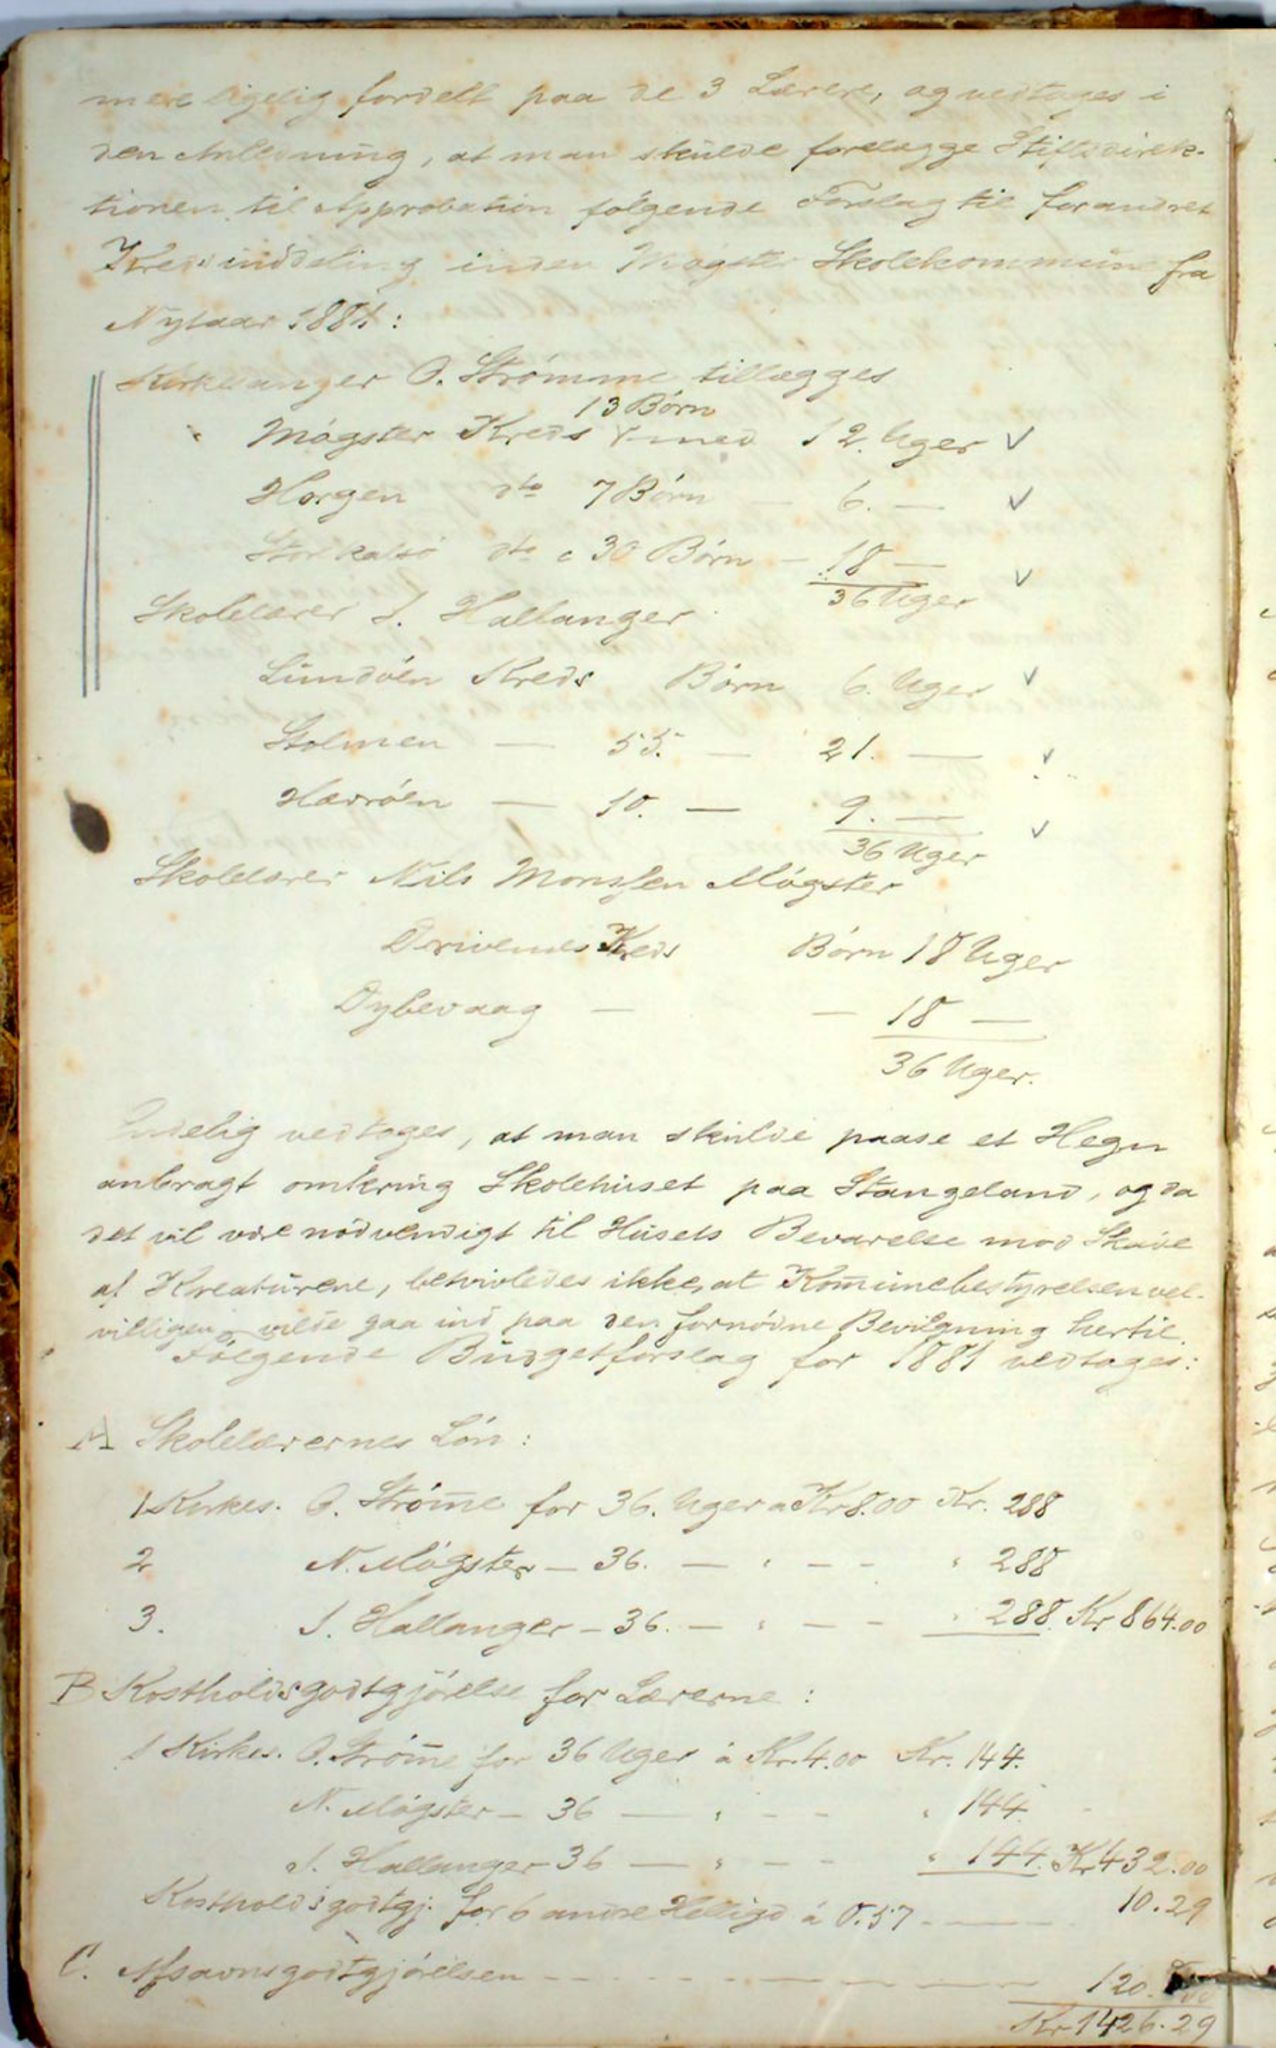 mere ligelig fordelt paa de 3 Lærere, og vedtoges i
den Anledning, at man skulde forelægge Stiftsdirek-
tionen til Approbation følgende Forslag til forandret
Kredsinddeling inden Møgster Skolekommune fra
Nytaar 1881:
Kirkesanger O. Strømme tillægges
13 Børn
Møgster Kreds med 12. Uger ✓
Horgen dto 7 Børn — 6. — ✓
Stor Kalsø dto c 30 Børn — 18 — ✓
36 Uger
Skolelærer S. Hallanger
Lunøen Kreds Børn 6. Uger ✓
Stolmen — 55. — 21. — ✓
Hærøen — 10. — 9. — ✓
36 Uger
Skolelærer Nils Monssen Møgster
Drivenes Kreds Børn 18 Uger
Dybevaag — — 18 —
36 Uger.
Endelig vedtoges, at man skulde paase et Hegn
anbragt omkring Skolehuset paa Stangeland, og da
det vil være nødvendigt til Husets Bevarelse mod Skade
af Kreaturene, betvivledes ikke, at Kom̅unebestyrelsen vel-
villigen vilde gaa ind paa den fornødne Bevilgning hertil.
Følgende Budgetforslag for 1881 vedtoges:
A Skolelærernes Løn:
1 Kirkes. O. Strøm̅e for 36. Uger a Kr 8.00 Kr. 288
2 N. Møgster — 36. — " — - " 288
3. S. Hallanger — 36. — " — - " 288. Kr 864.00
B Kostholdsgodtgjørelse for Lærerne:
1 Kirkes. O. Strøm̅e for 36 Uger á Kr. 4.00 Kr. 144.
N. Møgster — 36 — " - - " 144.
S. Hallanger 36 — " - - " 144. Kr 432.00
Kostholdsgodtgj. for 6 andre Helligd á 0.57 — 10.29
C. Afsavnsgodtgjørelsen — 120.
Kr 1426.29